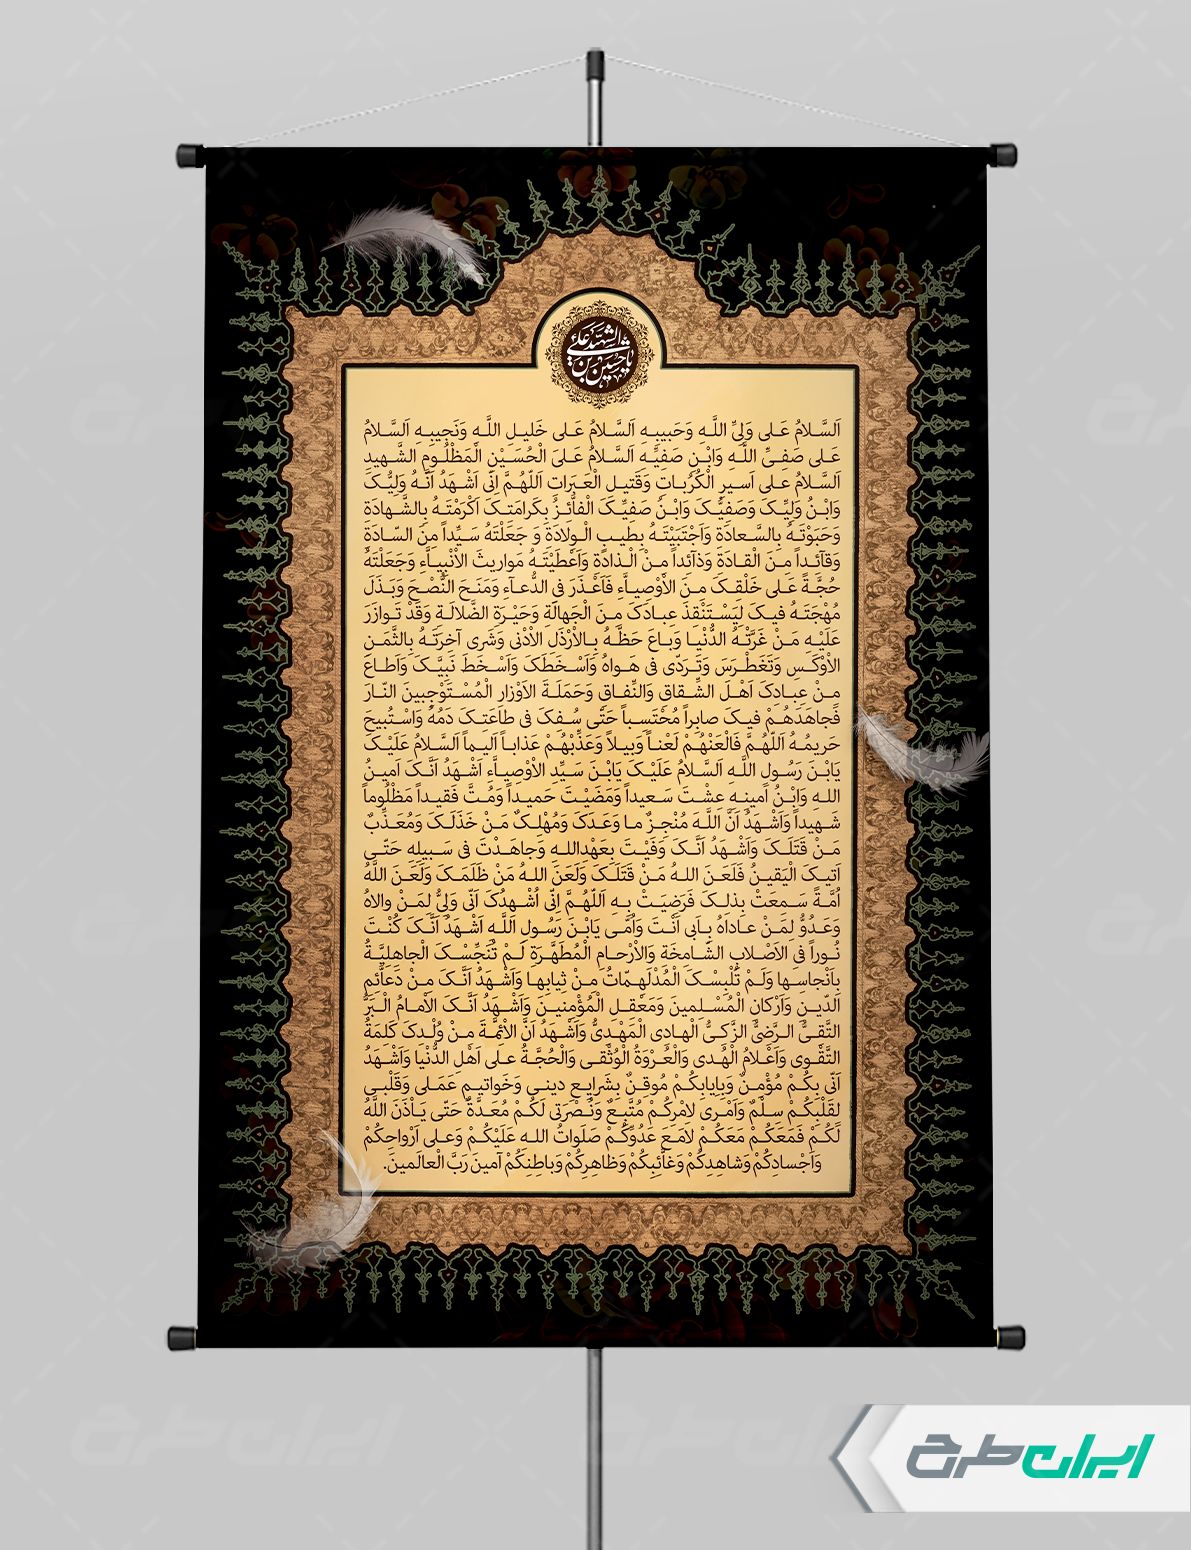 یا حسین بن علی الشهید
اَلسَّلامُ عَلی وَلِیِّ اللَّهِ وَحَبیبِهِ اَلسَّلامُ عَلی خَلیلِ اللَّهِ وَنَجیبِهِ اَلسَّلامُ
عَلی صَفِیِّ اللَّهِ وَابْنِ صَفِیِّهِ اَلسَّلامُ عَلیَ الْحُسَیْنِ الْمَظْلُومِ الشَّهیدِ
اَلسَّلامُ علی اَسیرِ الْکُرُباتِ وَقَتیلِ الْعَبَراتِ اَللّهُمَّ اِنّی اَشْهَدُ اَنَّهُ وَلِیُّکَ
وَابْنُ وَلِیِّکَ وَصَفِیُّکَ وَابْنُ صَفِیِّکَ الْفاَّئِزُ بِکَرامَتِکَ اَکْرَمْتَهُ بِالشَّهادَةِ
وَحَبَوْتَهُ بِالسَّعادَةِ وَاَجْتَبَیْتَهُ بِطیبِ الْوِلادَةِ وَ جَعَلْتَهُ سَیِّداً مِنَ السّادَةِ
وَقآئِداً مِنَ الْقادَةِ وَذآئِداً مِنْ الْذادَةِ وَاَعْطَیْتَهُ مَواریثَ الاَْنْبِیاَّءِ وَجَعَلْتَهُ
حُجَّةً عَلی خَلْقِکَ مِنَ الاَْوْصِیاَّءِ فَاَعْذَرَ فیِ الدُّعآءِ وَمَنَحَ النُّصْحَ وَبَذَلَ
مُهْجَتَهُ فیکَ لِیَسْتَنْقِذَ عِبادَکَ مِنَ الْجَهالَةِ وَحَیْرَةِ الضَّلالَةِ وَقَدْ تَوازَرَ
عَلَیْهِ مَنْ غَرَّتْهُ الدُّنْیا وَباعَ حَظَّهُ بِالاَْرْذَلِ الاَْدْنی وَشَری آخِرَتَهُ بِالثَّمَنِ
الاَْوْکَسِ وَتَغَطْرَسَ وَتَرَدّی فی هَواهُ وَاَسْخَطَکَ وَاَسْخَطَ نَبِیَّکَ وَاَطاعَ
مِنْ عِبادِکَ اَهْلَ الشِّقاقِ وَالنِّفاقِ وَحَمَلَةَ الاَْوْزارِ الْمُسْتَوْجِبینَ النّارَ
فَجاهَدَهُمْ فیکَ صابِراً مُحْتَسِباً حَتّی سُفِکَ فی طاعَتِکَ دَمُهُ وَاسْتُبیحَ
حَریمُهُ اَللّهُمَّ فَالْعَنْهُمْ لَعْناً وَبیلاً وَعَذِّبْهُمْ عَذاباً اَلیماً اَلسَّلامُ عَلَیْکَ
یَابْنَ رَسُولِ اللَّهِ اَلسَّلامُ عَلَیْکَ یَابْنَ سَیِّدِ الاَْوْصِیاَّءِ اَشْهَدُ اَنَّکَ اَمینُ
اللهِ وَابْنُ اَمینِهِ عِشْتَ سَعیداً وَمَضَیْتَ حَمیداً وَمُتَّ فَقیداً مَظْلُوماً
شَهیداً وَاَشْهَدُ اَنَّ اللَّهَ مُنْجِزٌ ما وَعَدَکَ وَمُهْلِکٌ مَنْ خَذَلَکَ وَمُعَذِّبٌ
مَنْ قَتَلَکَ وَاَشْهَدُ اَنَّکَ وَفَیْتَ بِعَهْدِاللهِ وَجاهَدْتَ فی سَبیلِهِ حَتّی
اَتیکَ الْیَقینُ فَلَعَنَ اللهُ مَنْ قَتَلَکَ وَلَعَنَ اللهُ مَنْ ظَلَمَکَ وَلَعَنَ اللَّهُ
اُمَّةً سَمِعَتْ بِذلِکَ فَرَضِیَتْ بِهِ اَللّهُمَّ اِنّی اُشْهِدُکَ اَنّی وَلِیُّ لِمَنْ والاهُ
وَعَدُوُّ لِمَنْ عاداهُ بِاَبی اَنْتَ وَاُمّی یَابْنَ رَسُولِ اللَّهِ اَشْهَدُ اَنَّکَ کُنْتَ
نُوراً فیِ الاَْصْلابِ الشّامِخَةِ وَالاَْرْحامِ الْمُطَهَّرَةِ لَمْ تُنَجِّسْکَ الْجاهِلِیَّةُ
بِاَنْجاسِها وَلَمْ تُلْبِسْکَ الْمُدْلَهِمّاتُ مِنْ ثِیابِها وَاَشْهَدُ اَنَّکَ مِنْ دَعاَّئِمِ
الدّینِ وَاَرْکانِ الْمُسْلِمینَ وَمَعْقِلِ الْمُؤْمِنینَ وَاَشْهَدُ اَنَّکَ الاِْمامُ الْبَرُّ
التَّقِیُّ الرَّضِیُّ الزَّکِیُّ الْهادِی الْمَهْدِیُّ وَاَشْهَدُ اَنَّ الاَْئِمَّةَ مِنْ وُلْدِکَ کَلِمَةُ
التَّقْوی وَاَعْلامُ الْهُدی وَالْعُرْوَةُ الْوُثْقی وَالْحُجَّةُ علی اَهْلِ الدُّنْیا وَاَشْهَدُ
اَنّی بِکُمْ مُؤْمِنٌ وَبِاِیابِکُمْ مُوقِنٌ بِشَرایِعِ دینی وَخَواتیمِ عَمَلی وَقَلْبی
لِقَلْبِکُمْ سِلْمٌ وَاَمْری لاَِمْرِکُمْ مُتَّبِعٌ وَنُصْرَتی لَکُمْ مُعَدَّةٌ حَتّی یَاْذَنَ اللَّهُ
لَکُمْ فَمَعَکُمْ مَعَکُمْ لامَعَ عَدُوِّکُمْ صَلَواتُ اللهِ عَلَیْکُمْ وَعلی اَرْواحِکُمْ
وَاَجْسادِکُمْ وَشاهِدِکُمْ وَغاَّئِبِکُمْ وَظاهِرِکُمْ وَباطِنِکُمْ آمینَ رَبَّ الْعالَمینَ.
ایران طرح